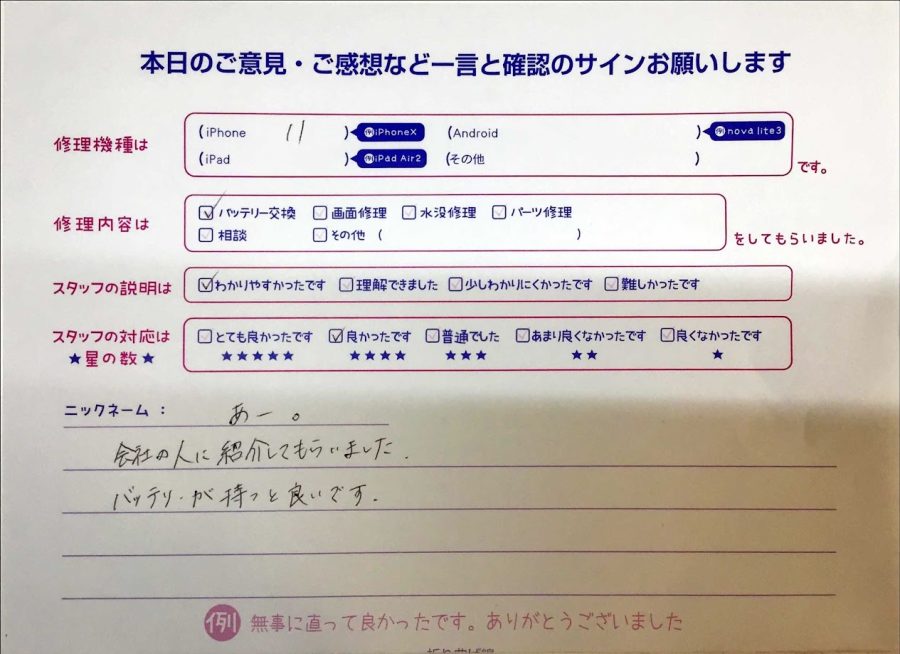 本日のご意見・ご感想など一言と確認のサインお願いします
修理機種は
(iPhone 11 ) 例iPhoneX (Android ) 例nova lite3
(iPad ) 例iPad Air2 (その他 ) です。
修理内容は
バッテリー交換 画面修理 水没修理 パーツ修理
相談 その他 ( ) をしてもらいました。
スタッフの説明は わかりやすかったです 理解できました 少しわかりにくかったです 難しかったです
スタッフの対応は とても良かったです 良かったです 普通でした あまり良くなかったです 良くなかったです
★星の数★ ★★★★★ ★★★★ ★★★ ★★ ★
ニックネーム: あー。
会社の人に紹介してもらいました.
バッテリーが持つと良いです.
例 無事に直って良かったです。ありがとうございました